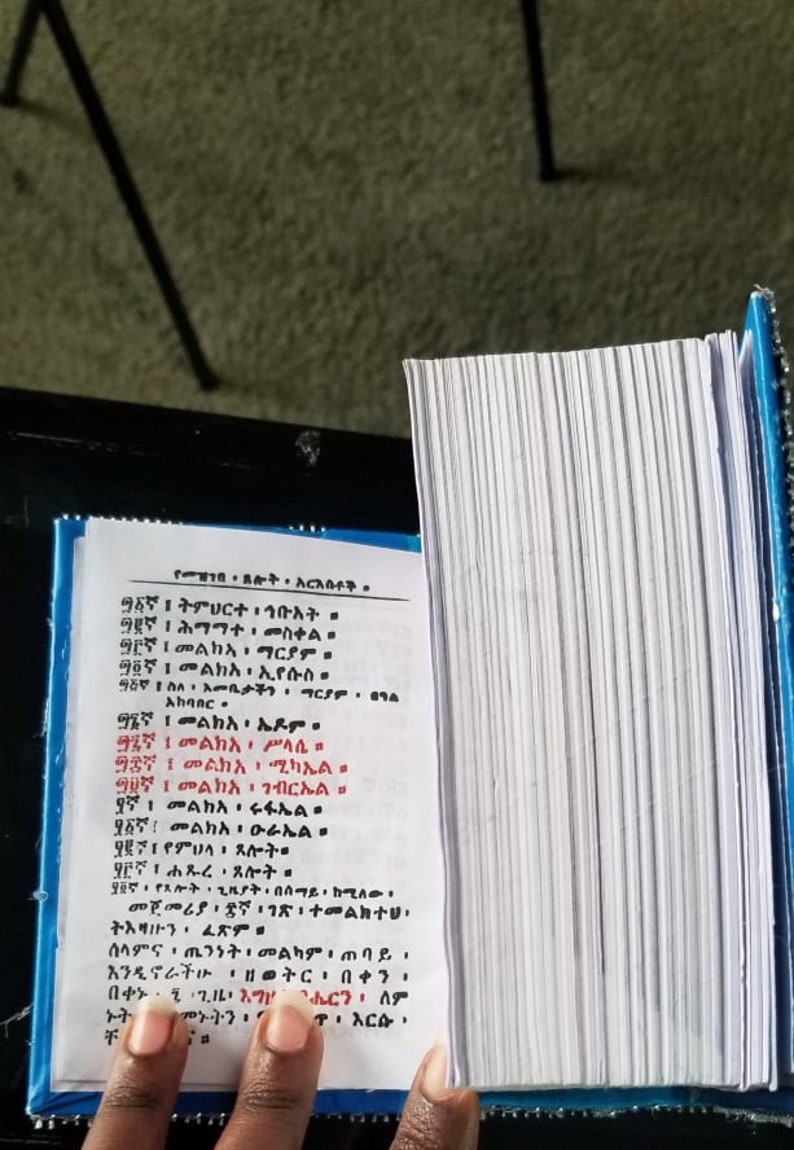 የመዝገበ ፡ ጸሎት ፡ አርእስቶች ።
፸፩ኛ ፤ ትምህርተ ፡ ኅቡአት ።
፸፪ኛ ፤ ሕማማተ ፡ መስቀል ።
፸፫ኛ ፤ መልክአ ፡ ማርያም ።
፸፬ኛ ፤ መልክአ ፡ ኢየሱስ ።
፸፭ኛ ፤ ስለ ፡ እመቤታችን ፡ ማርያም ፡ በዓል
አከባበር ።
፸፮ኛ ፤ መልክአ ፡ ኤዶም ።
፸፯ኛ ፤ መልክአ ፡ ሥላሴ ።
፸፰ኛ ፤ መልክአ ፡ ሚካኤል ።
፸፱ኛ ፤ መልክአ ፡ ገብርኤል ።
፹ኛ ፤ መልክአ ፡ ሩፋኤል ።
፹፩ኛ ፤ መልክአ ፡ ዑራኤል ።
፹፪ኛ ፤ የምህላ ፡ ጸሎት ።
፹፫ኛ ፤ ሐጹረ ፡ ጸሎት ።
፹፬ኛ ፡ የጸሎት ፡ ጊዜያት ፡ በሰማይ ፡ ከሚለው ፡
መጀመሪያ ፡ ገጽ ፡ ተመልክተህ ፡
ትእዛዙን ፡ ፈጽም ።
ሰላምና ፡ ጤንነት ፡ መልካም ፡ ጠባይ ፡
እንዲኖራችሁ ፡ ዘወትር ፡ በቀን ፡
በቀኑ ፡ ፯ ፡ ጊዜ ፡ ለም
እርሱ ፡